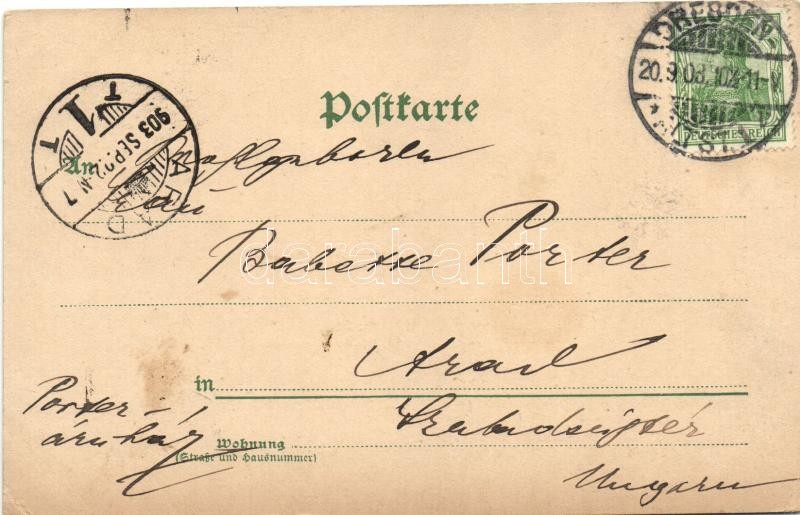 DRESDEN
20.9.03. 10½-11-V
DEUTSCHES REICH
Postkarte
ARAD
903 SEP
T 1 T
An
Babette Porter
in Arad
Porter-
áruház
Szabadságtér
Wohnung
(Straße und Hausnummer)
Ungarn
darabanth